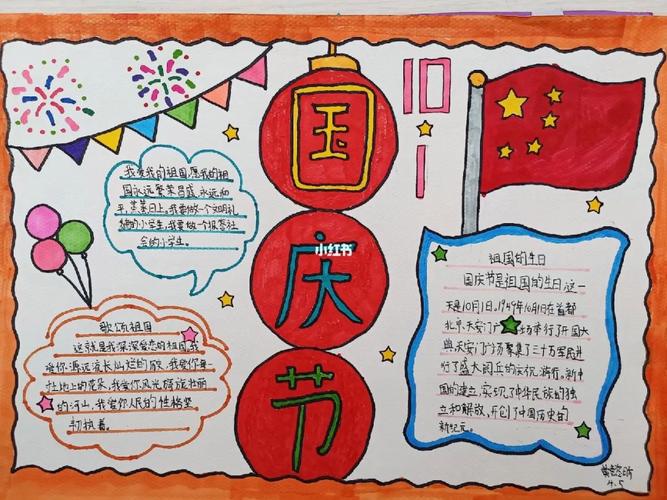 国
庆
节
小红书
10
1
我爱我的祖国,愿我的祖
国永远繁荣昌盛,永远和
平,蒸蒸日上。我要做一个文明礼
貌的小学生,我要做一个报答社
会的小学生。
歌颂祖国
这就是我深深爱恋的祖国,我
爱你源远流长灿烂的,我爱你每一
地上的花朵,我爱你风光旖旎壮丽
的河山,我爱你人民的性格坚
韧执着。
祖国的生日
国庆节是祖国的生日,这一
天是10月1日,1949年10月1日在首都
北京天安门广场举行了开国大
典,天安门广场聚集了三十万军民进
行了盛大阅兵的庆祝游行,新中
国的建立,实现了中华民族的独
立和解放,开创了中国历史的
新纪元。
4.5